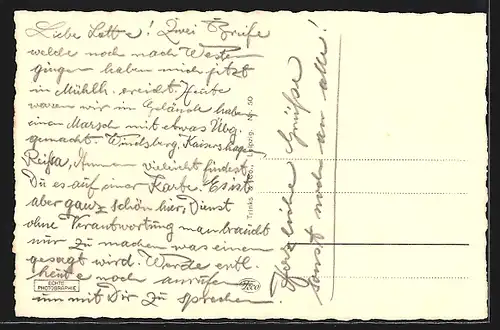 Liebe Lotte! Zwei Briefe
welche noch nach Westen
gingen haben mich jetzt
in Mühlh. ereicht. Heute
waren wir im Gelände haben
einen Marsch mit etwas Übg.
gemacht. Windsberg, Kaisershagen
Reißa, Ammern vieleicht findest
Du es auf einer Karte. Es ist
aber ganz schön hier, Dienst
ohne Verantwortung man braucht
nur zu machen was einem
gesagt wird. Werde entl.
heute noch anrufen
um mit Dir zu sprechen.
Herzliche Grüße
sonst noch an alle!
Trinks & Co., Leipzig. Nr. 50
ECHTE
PHOTOGRAPHIE